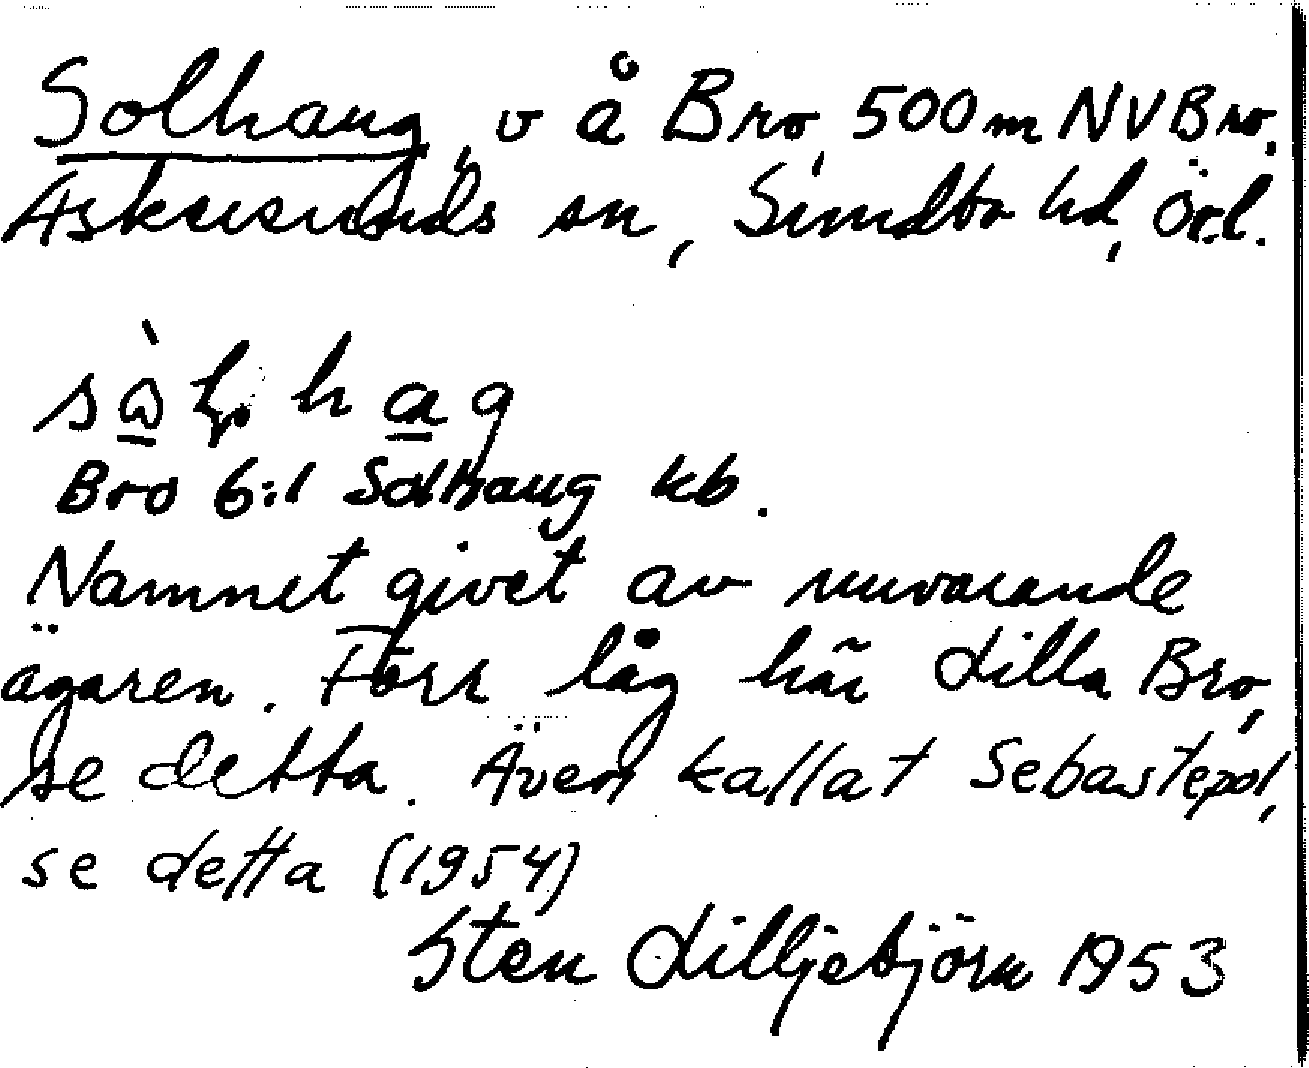 Solhaug, v å Bro, 500 m NV Bro.
Askersunds sn, Sundbo hd, Örl.
Bro 6:1 Solhaug kb.
Namnet givet av nuvarande
ägaren. Förr låg här Lilla Bro,
se detta. Även kallat Sebastopol,
se detta (1954)
Sten Lilljebjörn 1953